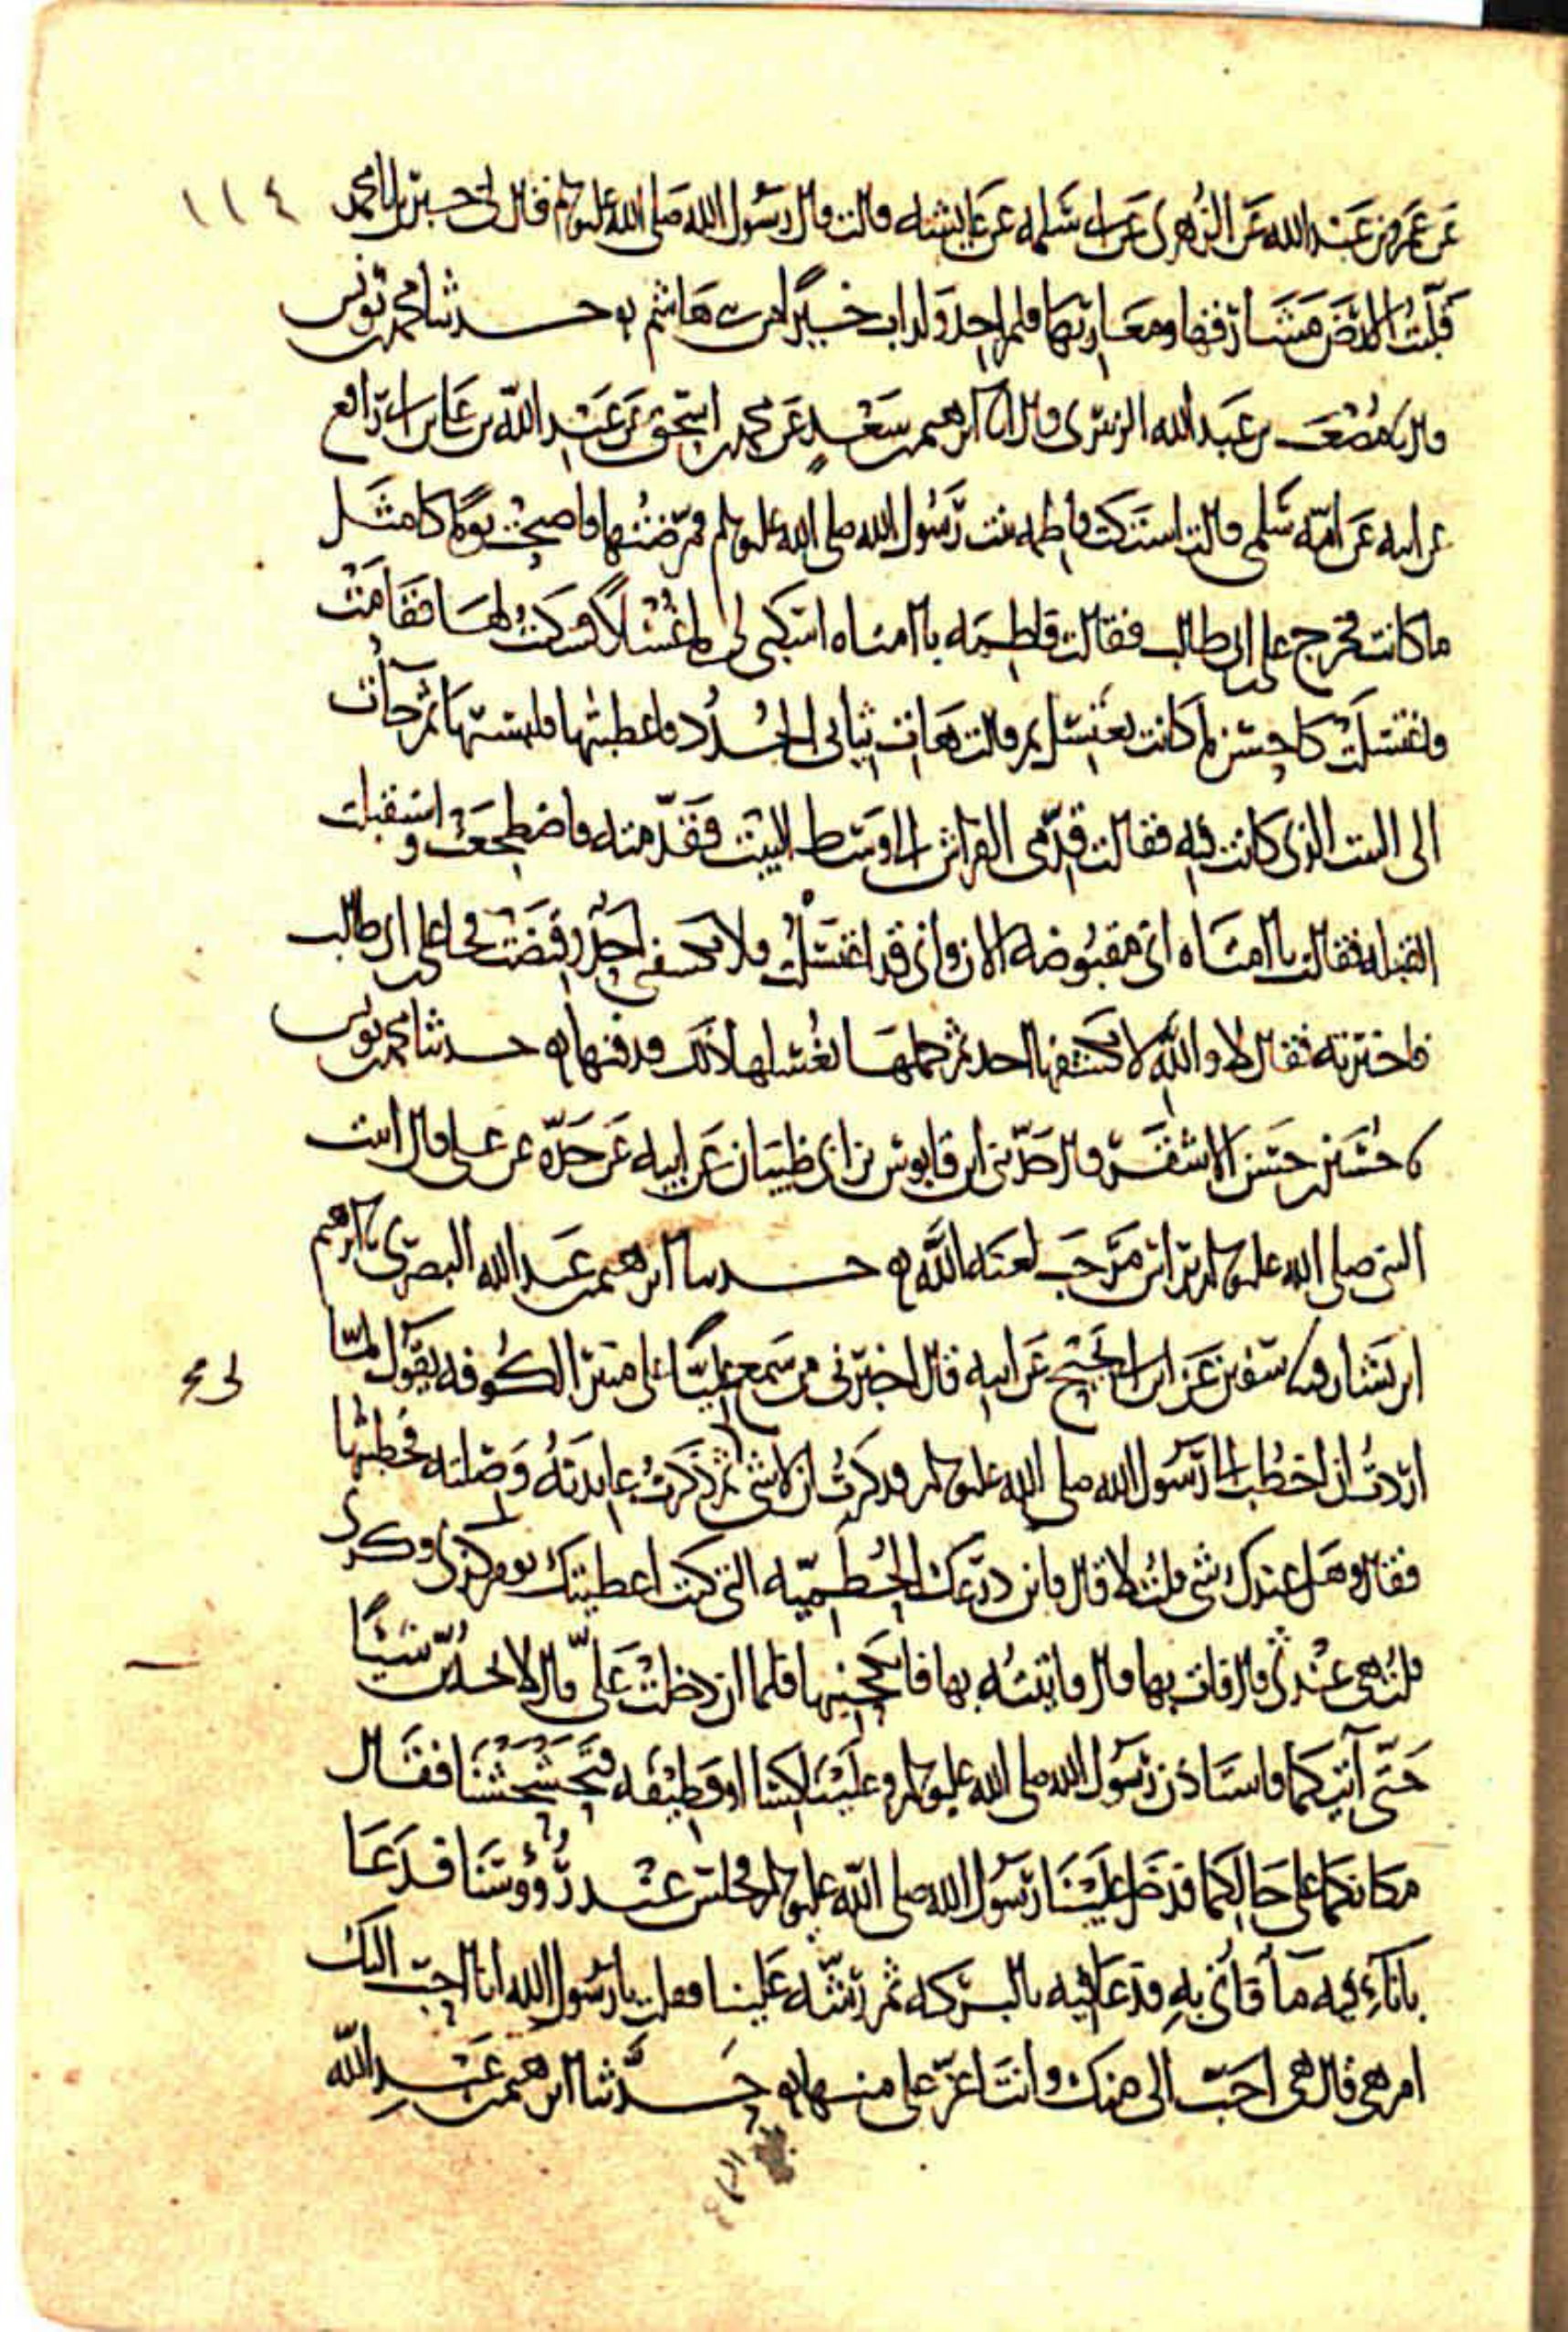 ١١٤
عن عمرو بن عبد الله عن الزهري عن ابي سلمه عن عايشه قالت قال رسول الله صلى الله عليه وسلم قال لي جبريل يا محمد
قلبت الارض مشارقها ومغاربها فلم اجد ولد اب خيرا من بني هاشم ه حدثنا محمد بن يونس
قال نا مصعب بن عبد الله الزبيري قال نا ابرهيم بن سعد عن محمد بن اسحق عن عبيد الله بن علي بن ابي رافع
عن ابيه عن امه سلمى قالت اشتكت فاطمه بنت رسول الله صلى الله عليه وسلم فمرضتها فاصبحت يوما كامثل
ما كانت فخرج علي بن ابي طالب فقالت فاطمه يا امتاه اسكبي لي غسلا فسكبت لها فقامت
فاغتسلت كاحسن ما كانت تغتسل ثم قالت هات ثيابي الجدد فاعطيتها فلبستها ثم جآت
الى البيت الذي كانت فيه فقالت قدمي الفراش الى وسط البيت فقدمته فاضطجعت واستقبلت
القبله فقالت يا امتاه اني مقبوضه الان واني قد اغتسلت فلا يكشفني احد فقبضت فجا علي بن ابي طالب
فاخبرته فقال لا والله لا يكشفها احد ثم حملها بغسلها ذلك فدفنها ه حدثنا محمد بن يونس
نا حسين بن حسن الاشقر قال حدثني ابن قابوس بن ابي ظبيان عن ابيه عن جده عن علي قال اتيت
النبي صلى الله عليه وسلم براس مرحب لعنه الله ه حدثنا ابرهيم بن عبد الله البصري نا ابرهيم
ابن بشار نا سفين عن ابن ابي نجيح عن ابيه قال اخبرني من سمع عليا على منبر الكوفه يقول لما
اردت ان اخطب الى رسول الله صلى الله عليه وسلم فذكرت ان لا شي ثم ذكرت عايدته وصلته فخطبتها
فقال وهل عندك شي قلت لا قال فاين درعك الحطميه التي كنت اعطيتك يوم كذى وكذى
قلت هي عندي قال فات بها قال فاتيته بها فانكحنيها فلما ان دخلت علي قال لا تحدثن شيئا
حتى آتيكما فاستاذن رسول الله صلى الله عليه وسلم وعلينا كسا او قطيفه فتحشحشنا فقال
مكانكما على حالكما فدخل علينا رسول الله صلى الله عليه وسلم فجلس عند رؤوسنا فدعا
باناء فيه مآ فاتي به فدعا فيه بالبركه ثم رشه علينا فقلت يا رسول الله انا احب اليك
ام هي قال هي احب الي منك وانت اعز علي منها ه حدثنا ابرهيم بن عبد الله